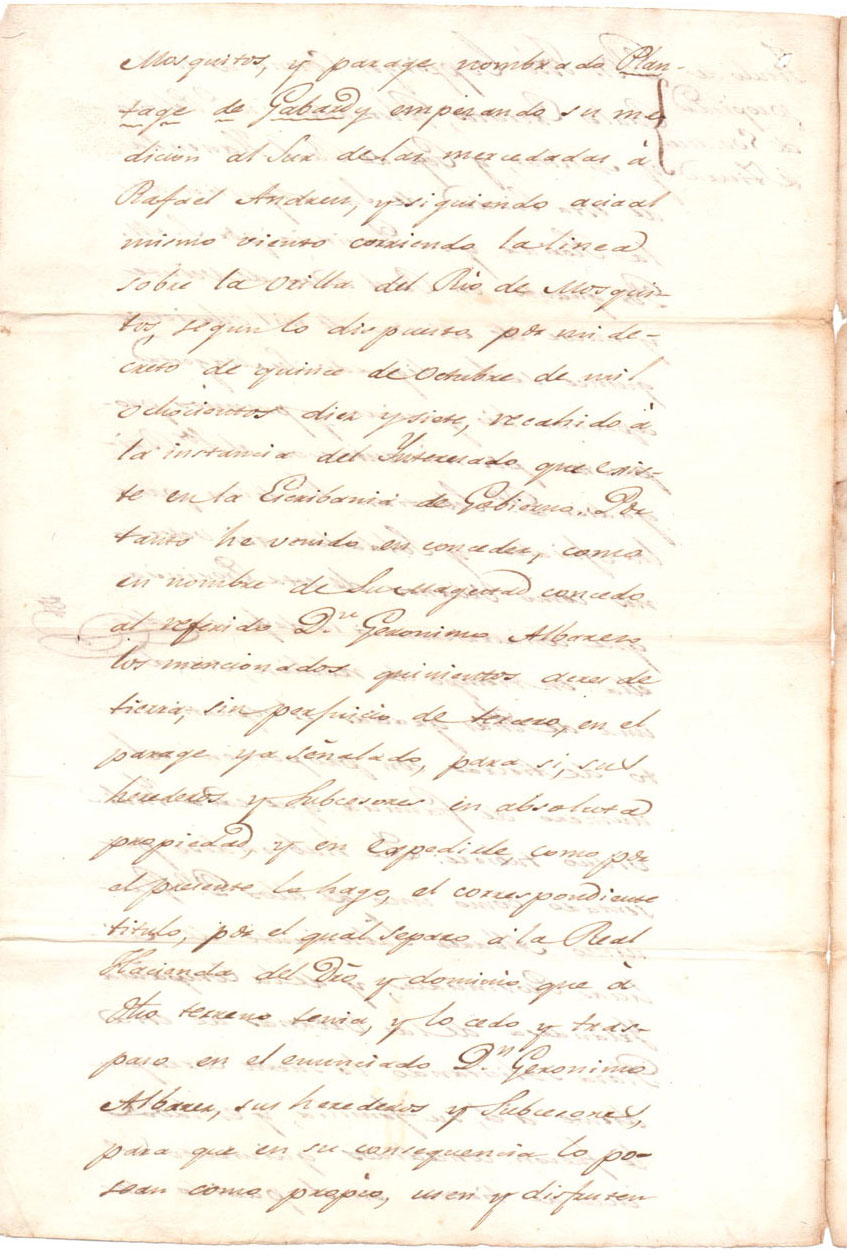 Mosquitos, y parage nombrado Plan-
tage de Gabardy empesando su me
dicion al Sur de las mercedadas à
Rafael Andreu, y siguiendo acia al
mismo viento corriendo la linea
sobre la Orilla del Rio de Mosqui-
tos, segun lo dispuesto por mi de-
creto de quince de Octubre de mil
ochocientos diez y siete, recahido à
la instancia del Interesado que exis-
te en la Escribania de Gobierno. Por
tanto he venido en conceder, como
en nombre de Su Magestad concedo
al referido D.n Geronimo Albarez
los mencionados quinientos acres de
tierra, sin perjuicio de tercero, en el
parage ya señalado, para si, sus
herederos y Subcesores en absoluta
propiedad, y en expedirle como por
el presente le hago, el correspondiente
titulo, por el qual separo à la Real
Hacienda del Dro y dominio que à
dho terreno tenia, y lo cedo y tras-
paso en el enunciado D.n Geronimo
Albarez, sus herederos y Subcesores,
para que en su consequencia lo po-
sean como propio, usen y disfruten